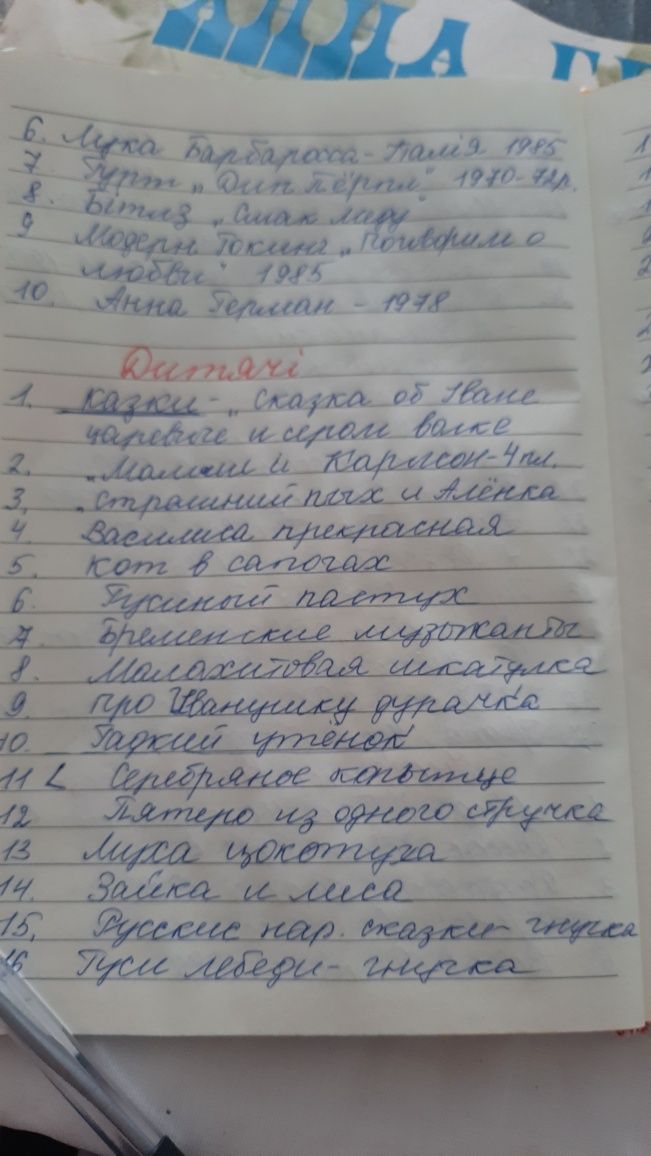 6. Лука Барбаросса - Італія 1985
7 Гурт „Дип Пёрпл" 1970-72р.
8. Бітлз „Смак меду"
9 Модерн Токинг „Поговорим о
любви" 1985
10. Анна Герман - 1978
Дитячі
1. казки - „Сказка об Іване
царевиче и сером волке
2. „Малыш и Карлсон - 4 пл.
3. „Страшний пых и Алёнка
4. Василиса прекрасная
5. Кот в сапогах
6. Гусиный пастух
7. Бременские музыканты
8. Малахитовая шкатулка
9. про Иванушку дурачка
10. Гадкий утёнок
11 Серебряное копытце
12 Пятеро из одного стручка
13 Муха цокотуха
14. Зайка и лиса
15. Русские нар. сказки - гнучка
16 Гуси лебеди - гнучка